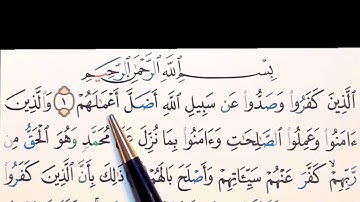 بِسْمِ ٱللَّهِ ٱلرَّحْمَٰنِ ٱلرَّحِيمِ
ٱلَّذِينَ كَفَرُوا۟ وَصَدُّوا۟ عَن سَبِيلِ ٱللَّهِ أَضَلَّ أَعْمَٰلَهُمْ ١ وَٱلَّذِينَ
ءَامَنُوا۟ وَعَمِلُوا۟ ٱلصَّٰلِحَٰتِ وَءَامَنُوا۟ بِمَا نُزِّلَ عَلَىٰ مُحَمَّدٍ وَهُوَ ٱلْحَقُّ مِن
رَّبِّهِمْ كَفَّرَ عَنْهُمْ سَيِّـَٔاتِهِمْ وَأَصْلَحَ بَالَهُمْ ذَٰلِكَ بِأَنَّ ٱلَّذِينَ كَفَرُوا۟